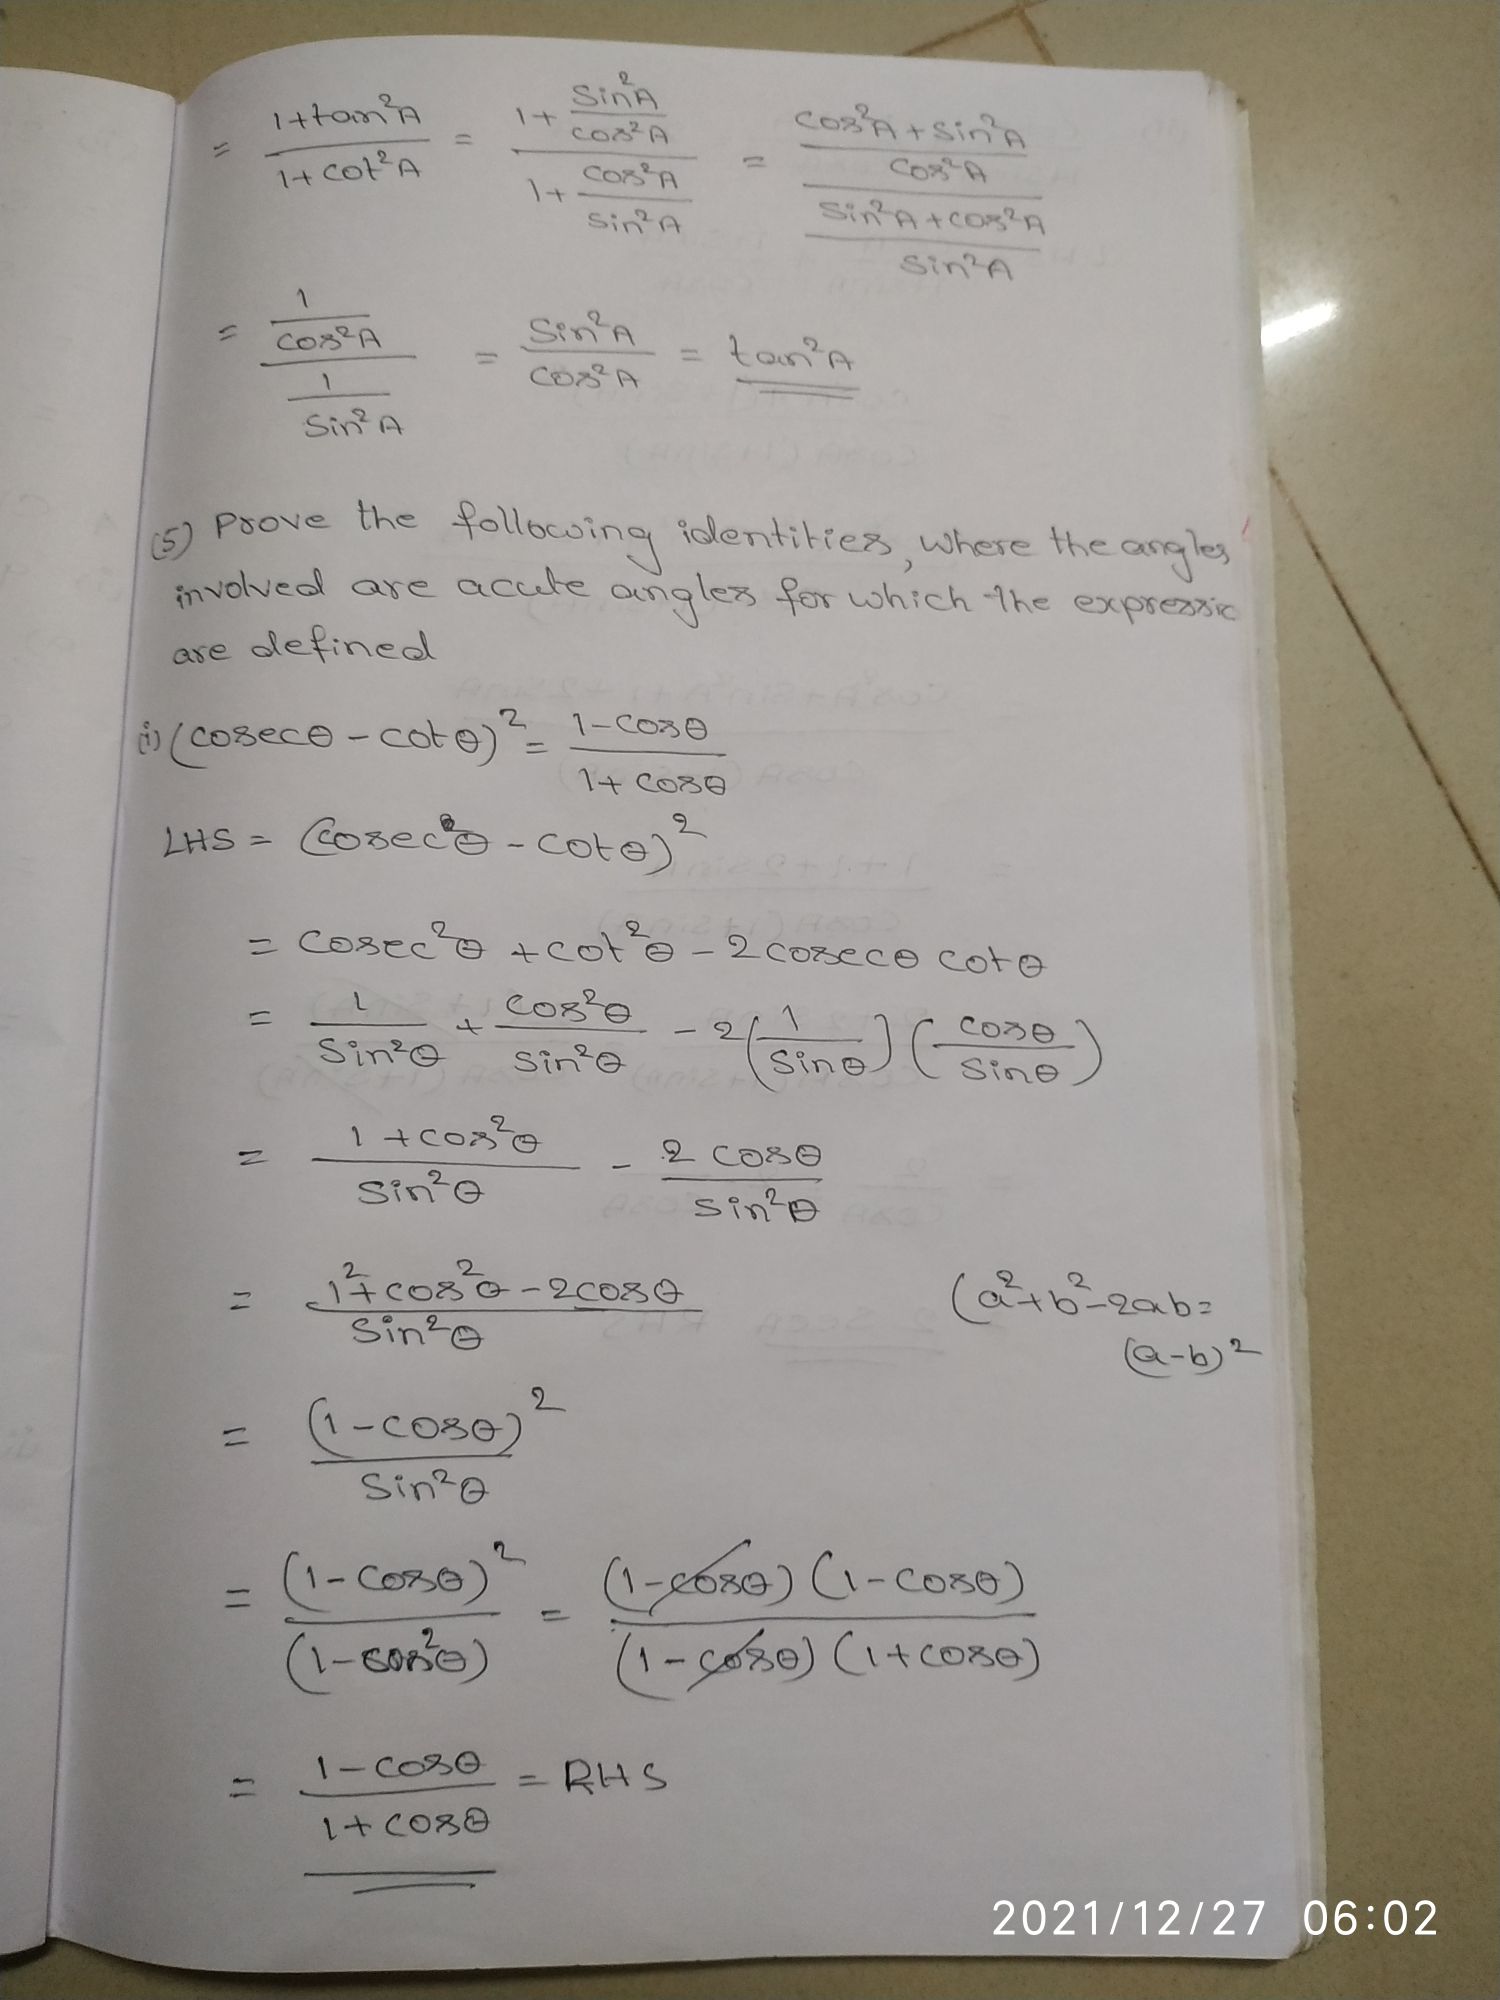 = (1+tan²A)/(1+cot²A) = (1+ sin²A/cos²A)/(1+ cos²A/sin²A) = ((cos²A+sin²A)/cos²A)/((sin²A+cos²A)/sin²A)
= (1/cos²A)/(1/sin²A) = sin²A/cos²A = tan²A
(5) Prove the following identities, where the angles
involved are acute angles for which the expressio
are defined
(i) (cosecθ - cotθ)² = (1-cosθ)/(1+cosθ)
LHS = (cosecθ - cotθ)²
= cosec²θ + cot²θ - 2cosecθ cotθ
= 1/sin²θ + cos²θ/sin²θ - 2(1/sinθ)(cosθ/sinθ)
= (1+cos²θ)/sin²θ - 2cosθ/sin²θ
= (1²+cos²θ-2cosθ)/sin²θ (a²+b²-2ab=
(a-b)²
= (1-cosθ)²/sin²θ
= (1-cosθ)²/(1-cos²θ) = (1-cosθ)(1-cosθ)/(1-cosθ)(1+cosθ)
= (1-cosθ)/(1+cosθ) = RHS
2021/12/27 06:02